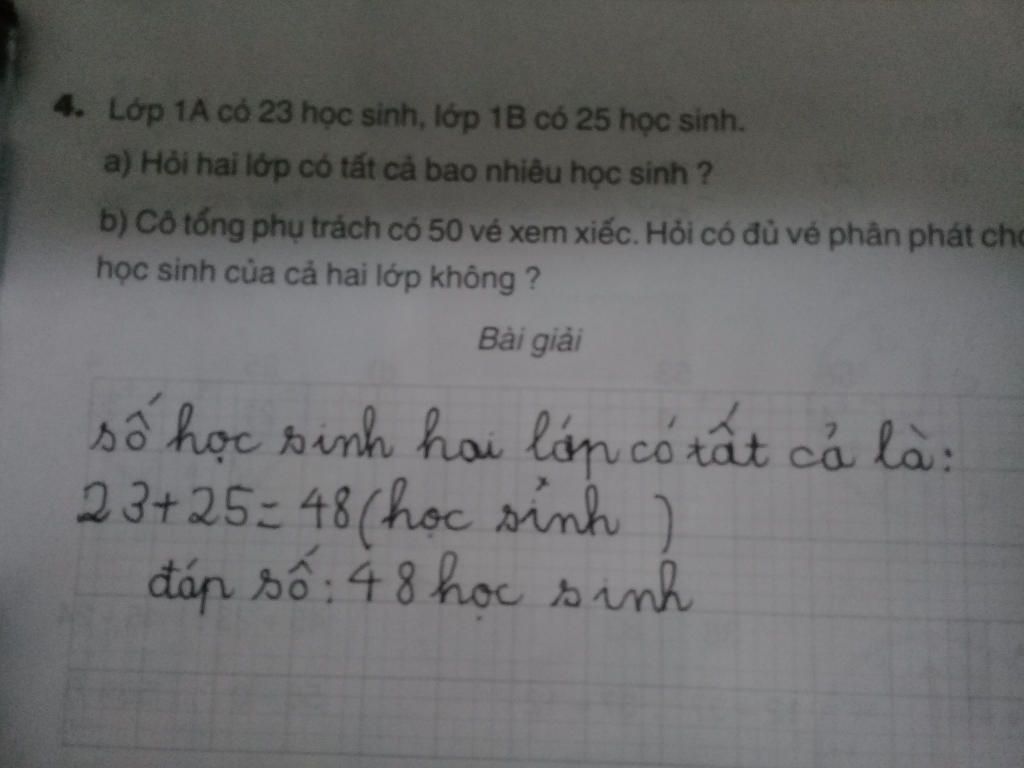 4. Lớp 1A có 23 học sinh, lớp 1B có 25 học sinh.
a) Hỏi hai lớp có tất cả bao nhiêu học sinh ?
b) Cô tổng phụ trách có 50 vé xem xiếc. Hỏi có đủ vé phân phát cho
học sinh của cả hai lớp không ?
Bài giải
số học sinh hai lớp có tất cả là:
23+25=48(học sinh)
đáp số: 48 học sinh